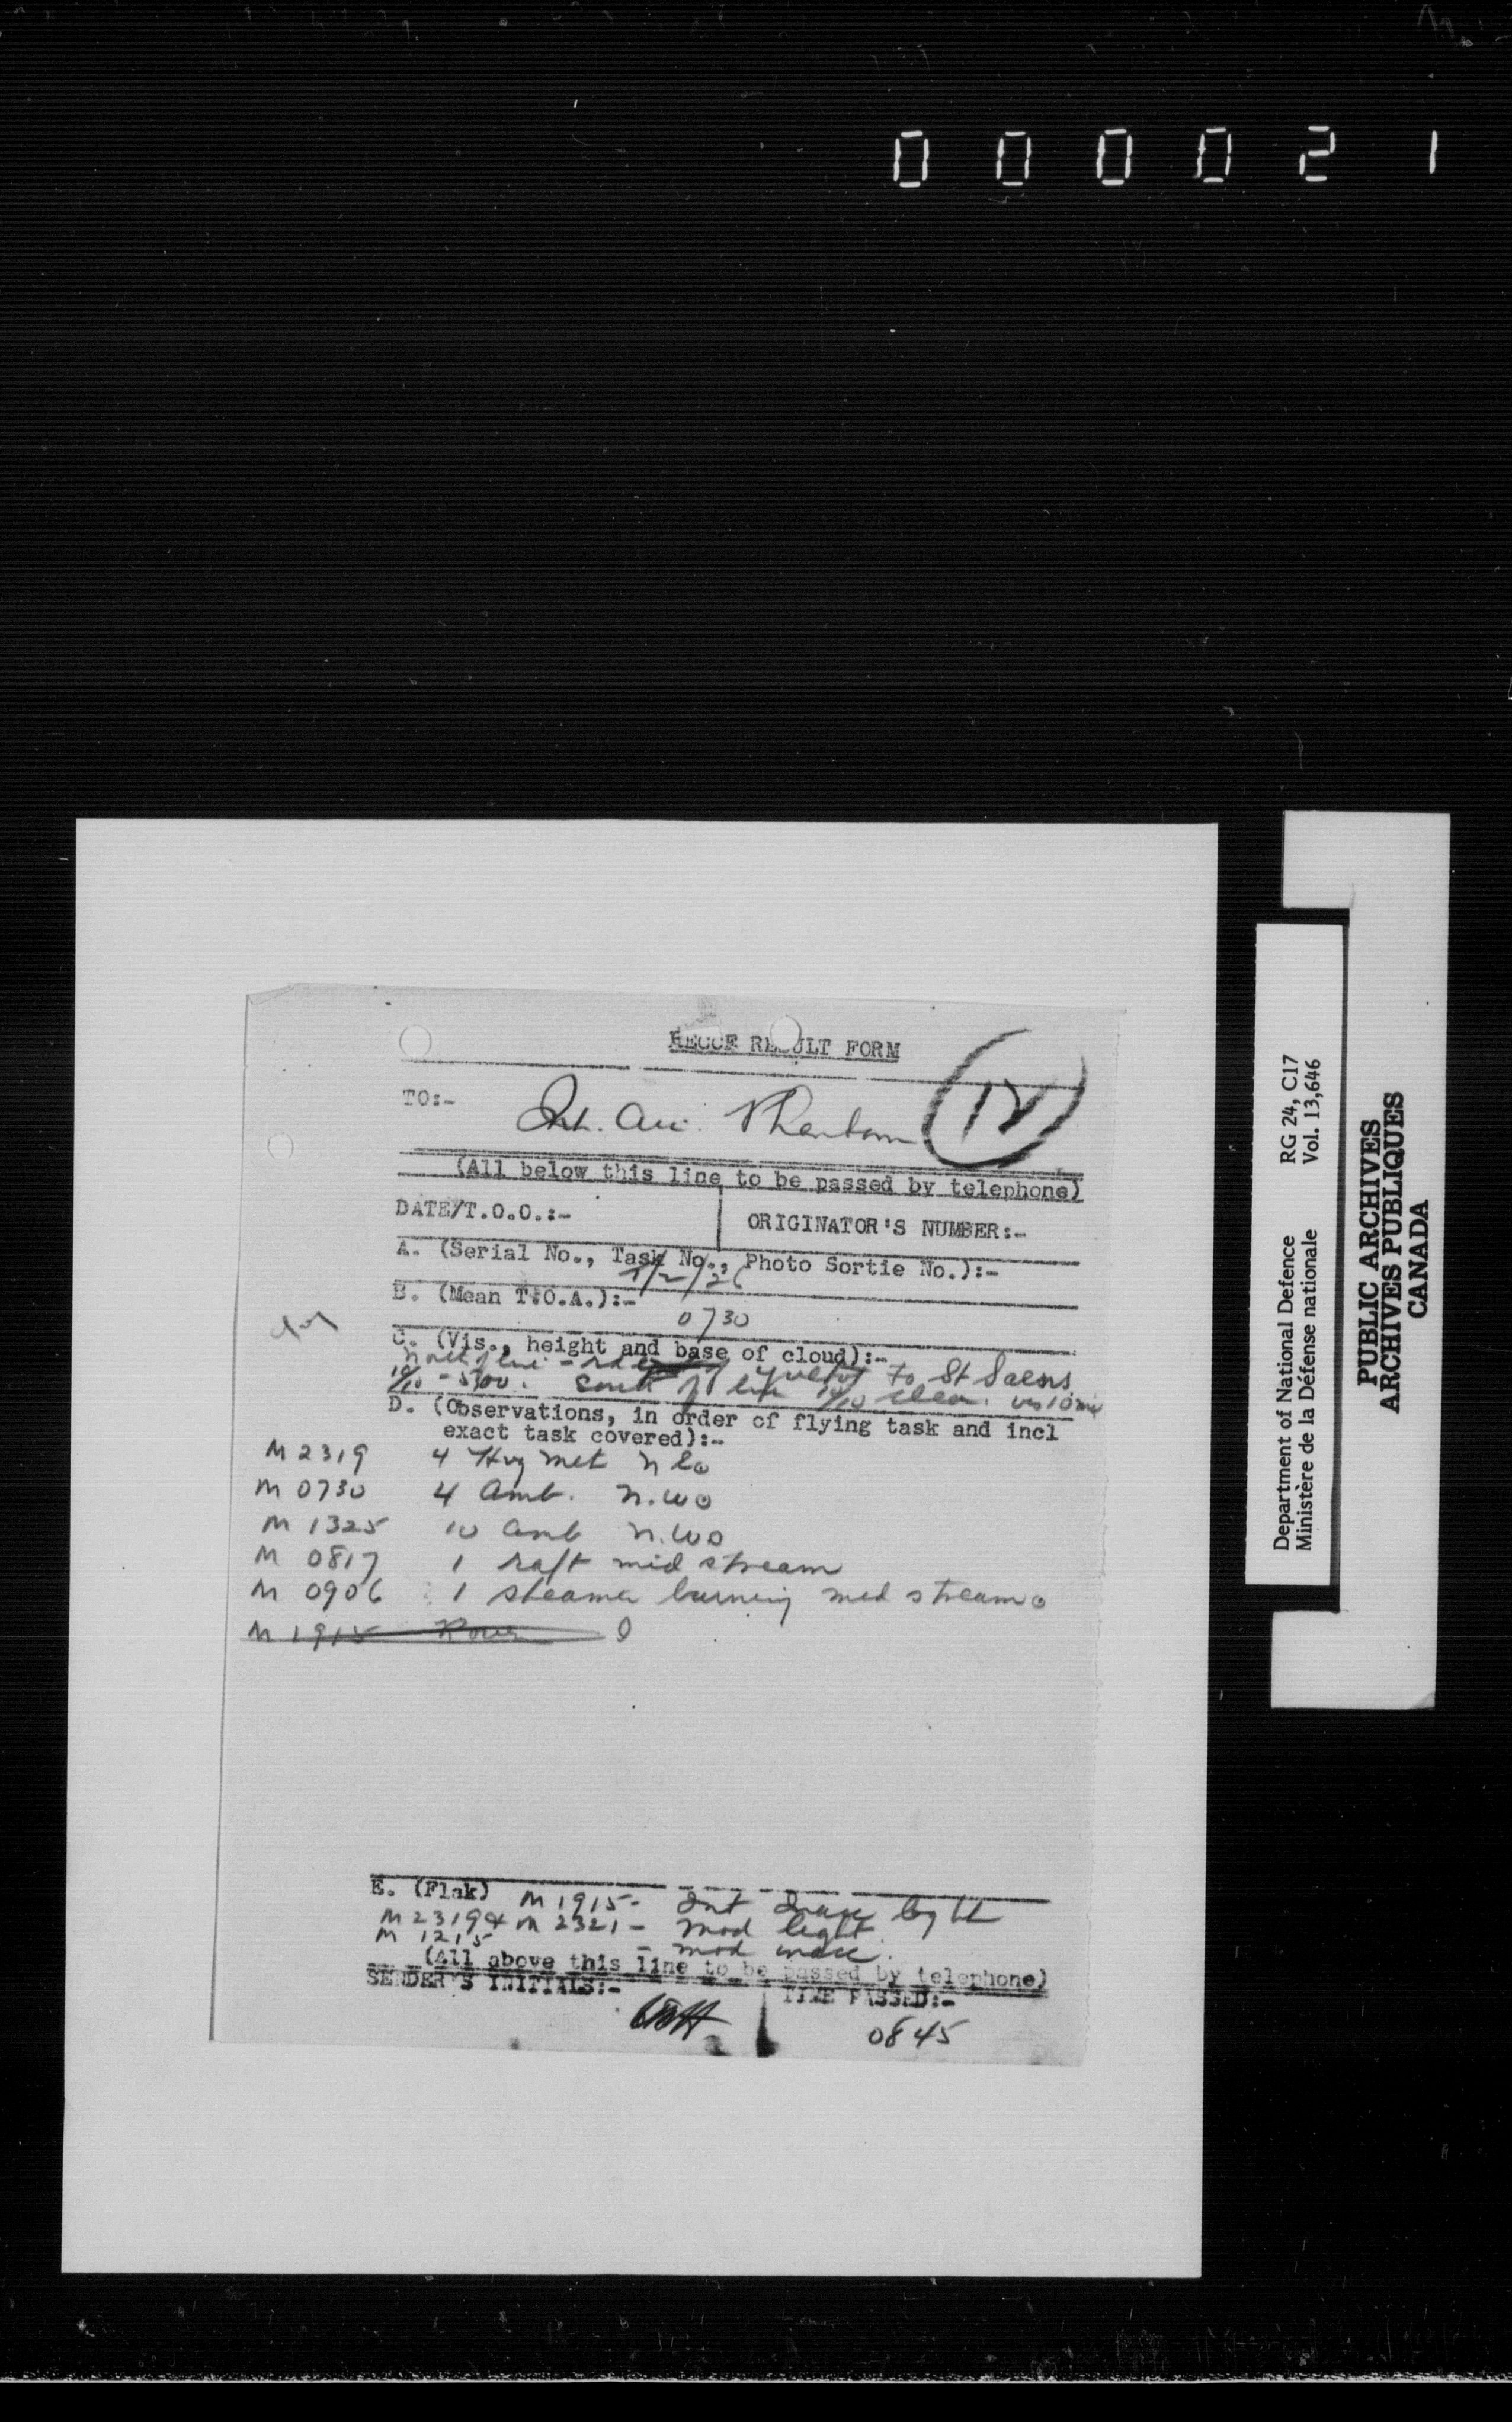 000021
RECCE RESULT FORM
TO:-
Int. Air. Phantom
12
(All below this line to be passed by telephone)
DATE/T.O.O.:-
ORIGINATOR'S NUMBER:-
A. (Serial No., Task No., Photo Sortie No.):-
T/2/26
B. (Mean T.O.A.):-
0730
C. (Vis., height and base of cloud):-
North of line - Yvetot to St Saens
10/10 - 5700. South of line 10/10 clear. vis 10 mi
D. (Observations, in order of flying task and incl
exact task covered):-
M 2319 4 Hvy met
M 0730 4 Amb. N.W.
M 1325 10 Amb N.W.
M 0817 1 raft mid stream
M 0906 1 steamer burning mid stream
M 1915 Rouen
E. (Flak) M 1915 - Int light
M 2319 & M 2321 - Mod light
M 1215 - mod
(All above this line to be passed by telephone)
SENDER'S INITIALS:-
TIME PASSED:-
0845
Department of National Defence RG 24, C17
Ministère de la Défense nationale Vol. 13,646
PUBLIC ARCHIVES
ARCHIVES PUBLIQUES
CANADA